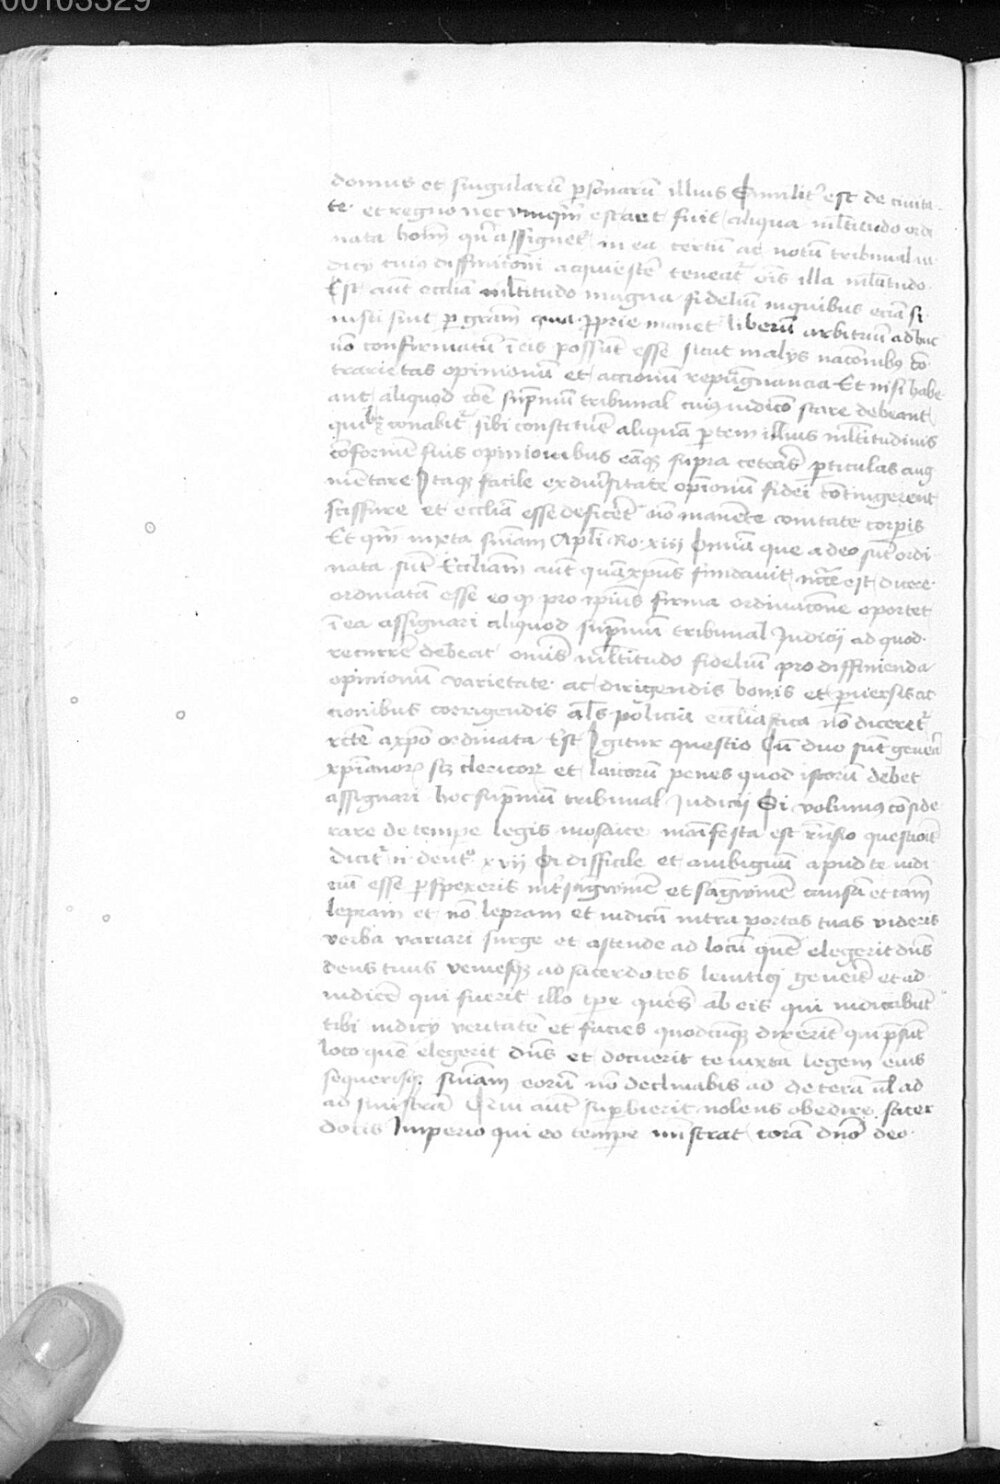 00103329
domus et singulariū ꝑsonarū illius Similit' est de ciuita-
te· et regno nec vnq̄m est aut fuit aliqua ml̄titudo ordi
nata hoīm qn̄ assignet' in ea certū ac notū tribunal iu
dicij cuius diffinicōni acquiesce teneat' oīs illa ml̄titudo·
Est aūt ecclīa ml̄titudo magna fidelium in quibus eciā si
iusti sint ꝑ grām quia ꝓprie manet liberū arbitriū adhuc
nō confirmatū ī eis possūt esse sicut in alijs nacōnibꝰ cō
trarietas opinionū et accionū repugnancia Et nisi habe
ant aliquod cōe sup̄mū tribunal cuiꝰ iudicō stare debeant
quilibꝫ conabit' sibi constitue aliquā ꝑtem illius ml̄titudinis
cōformē suis opinionibus eāqꝫ supra ceteras ꝑticulas aug
mētare Itaqꝫ facile ex diu'sitate opīonū fidei cōtingerent
scissure et ecclīa esse deficēt nō manēte vnitate corpis
Et qm̄ iuxta sniam Apl̄i Ro· xiij Omīa que a deo sūt ordi
nata sūt Ecclīam aūt quā xp̄us fundauit nc̄ce est dicere
ordinatā esse eo qꝫ pro ip̄ius firma ordinacōne oportet
ī ea assignari aliquod sup̄mū tribunal Judicij ad quod·
recurrē debeat omīs ml̄titudo fidelium pro diffinienda
opinionū varietate· ac dirigendis bonis et ꝑuersis ac
cionibus corrigendis al̄s policia eccl̄iastica nō diceret'
rcte a xp̄o ordinata Est Igitur questio Cū duo sūt genera
xp̄ianoꝝ sꝫ clericoꝝ et laicorū penes quod istorū debet
assignari hoc sup̄mū tribunal Judicij Si volumꝰ cōside
rare de tempe legis mosaice manifesta est rn̄sio questiōis
Dicit' n̄ deut' xvij Si difficile et ambiguū apud te iudi
ciū esse ꝑspexeris int' sangwinē et sāgwinē causā et cām
lepram et nō lepram et iudicū intra portas tuas videris
verba variari surge et ascende ad locū quē elegerit dn̄s
deus tuus veniesqꝫ ad sacerdotes leuitici gen'is et ad
iudicē qui fuerit illo tp̄e queres ab eis qui iudicabūt
tibi iudicij veritatē et facies quodcūqꝫ dixerīt qui p̄sūt
loco quē elegerit dn̄s et docuerīt te iuxta legem eius
sequerisqꝫ sniam eorū nō declinabis ad dexterā ul̄ ad
ad sinistrā Qui aūt sup̄bierit nolens obedire sacer
dotis Imperio qui eo tempe ministrat corā dn̄o deo·